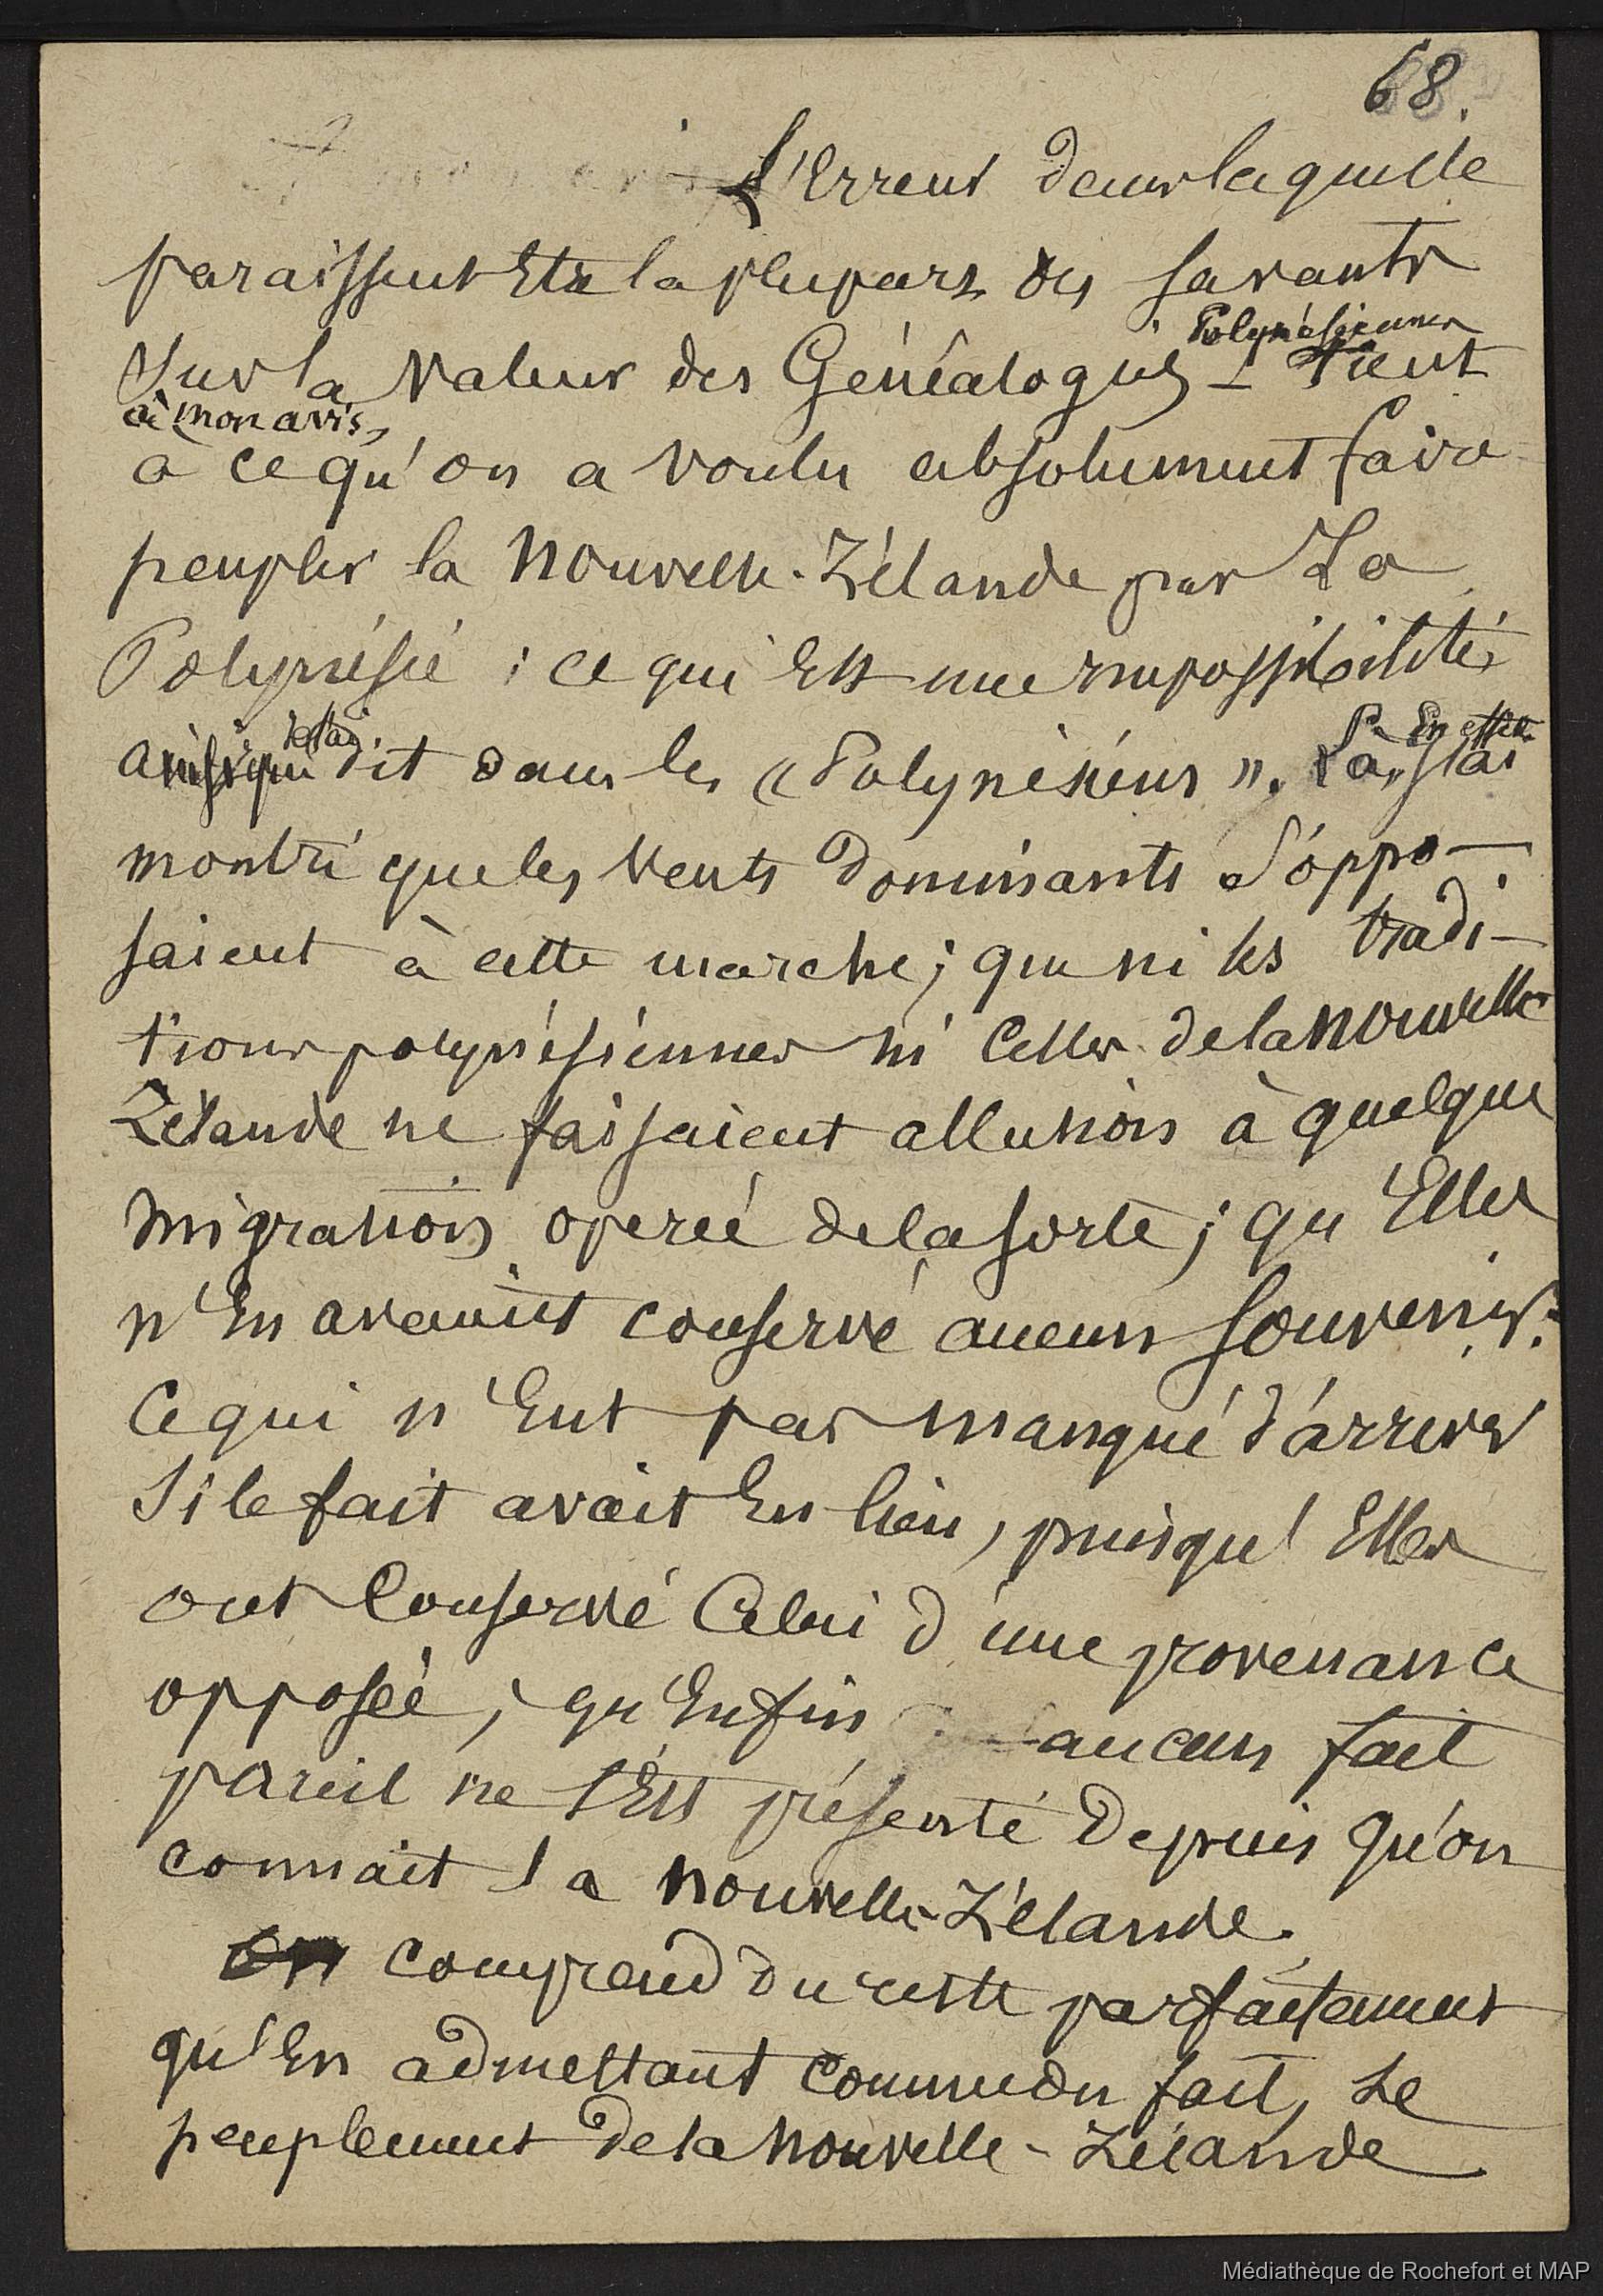 68.
L'Erreur dans laquelle
paraissent Etre la plupart des savants
Polynésiennes
Sur la valeur des Généalogies - tient
à mon avis,
à ce qu'on a voulu absolument faire
peupler la Nouvelle-Zélande par La
Polynésie ; ce qui Est une impossibilité,
je l'ai En effet
ainsi que dit dans les « Polynésiens ». Là, j'ai
montré que les vents dominants s'oppo-
saient à cette marche ; que ni les tradi-
tions polynésiennes ni Celles de la Nouvelle
Zélande ne faisaient allusion à quelque
migration operée de la sorte ; qu'Elles
n'En avaient conservé aucun souvenir.
Ce qui n'Eut pas manqué d'arriver
Si le fait avait Eu lieu, puisqu'Elles
ont Conservé Celui d'une provenance
opposée ; qu'Enfin aucun fait
pareil ne s'Est présenté Depuis qu'on
connait la Nouvelle-Zélande.
On comprend du reste parfaitement
qu'En admettant comme un fait, Le
peuplement de la Nouvelle-Zélande
Médiathèque de Rochefort et MAP